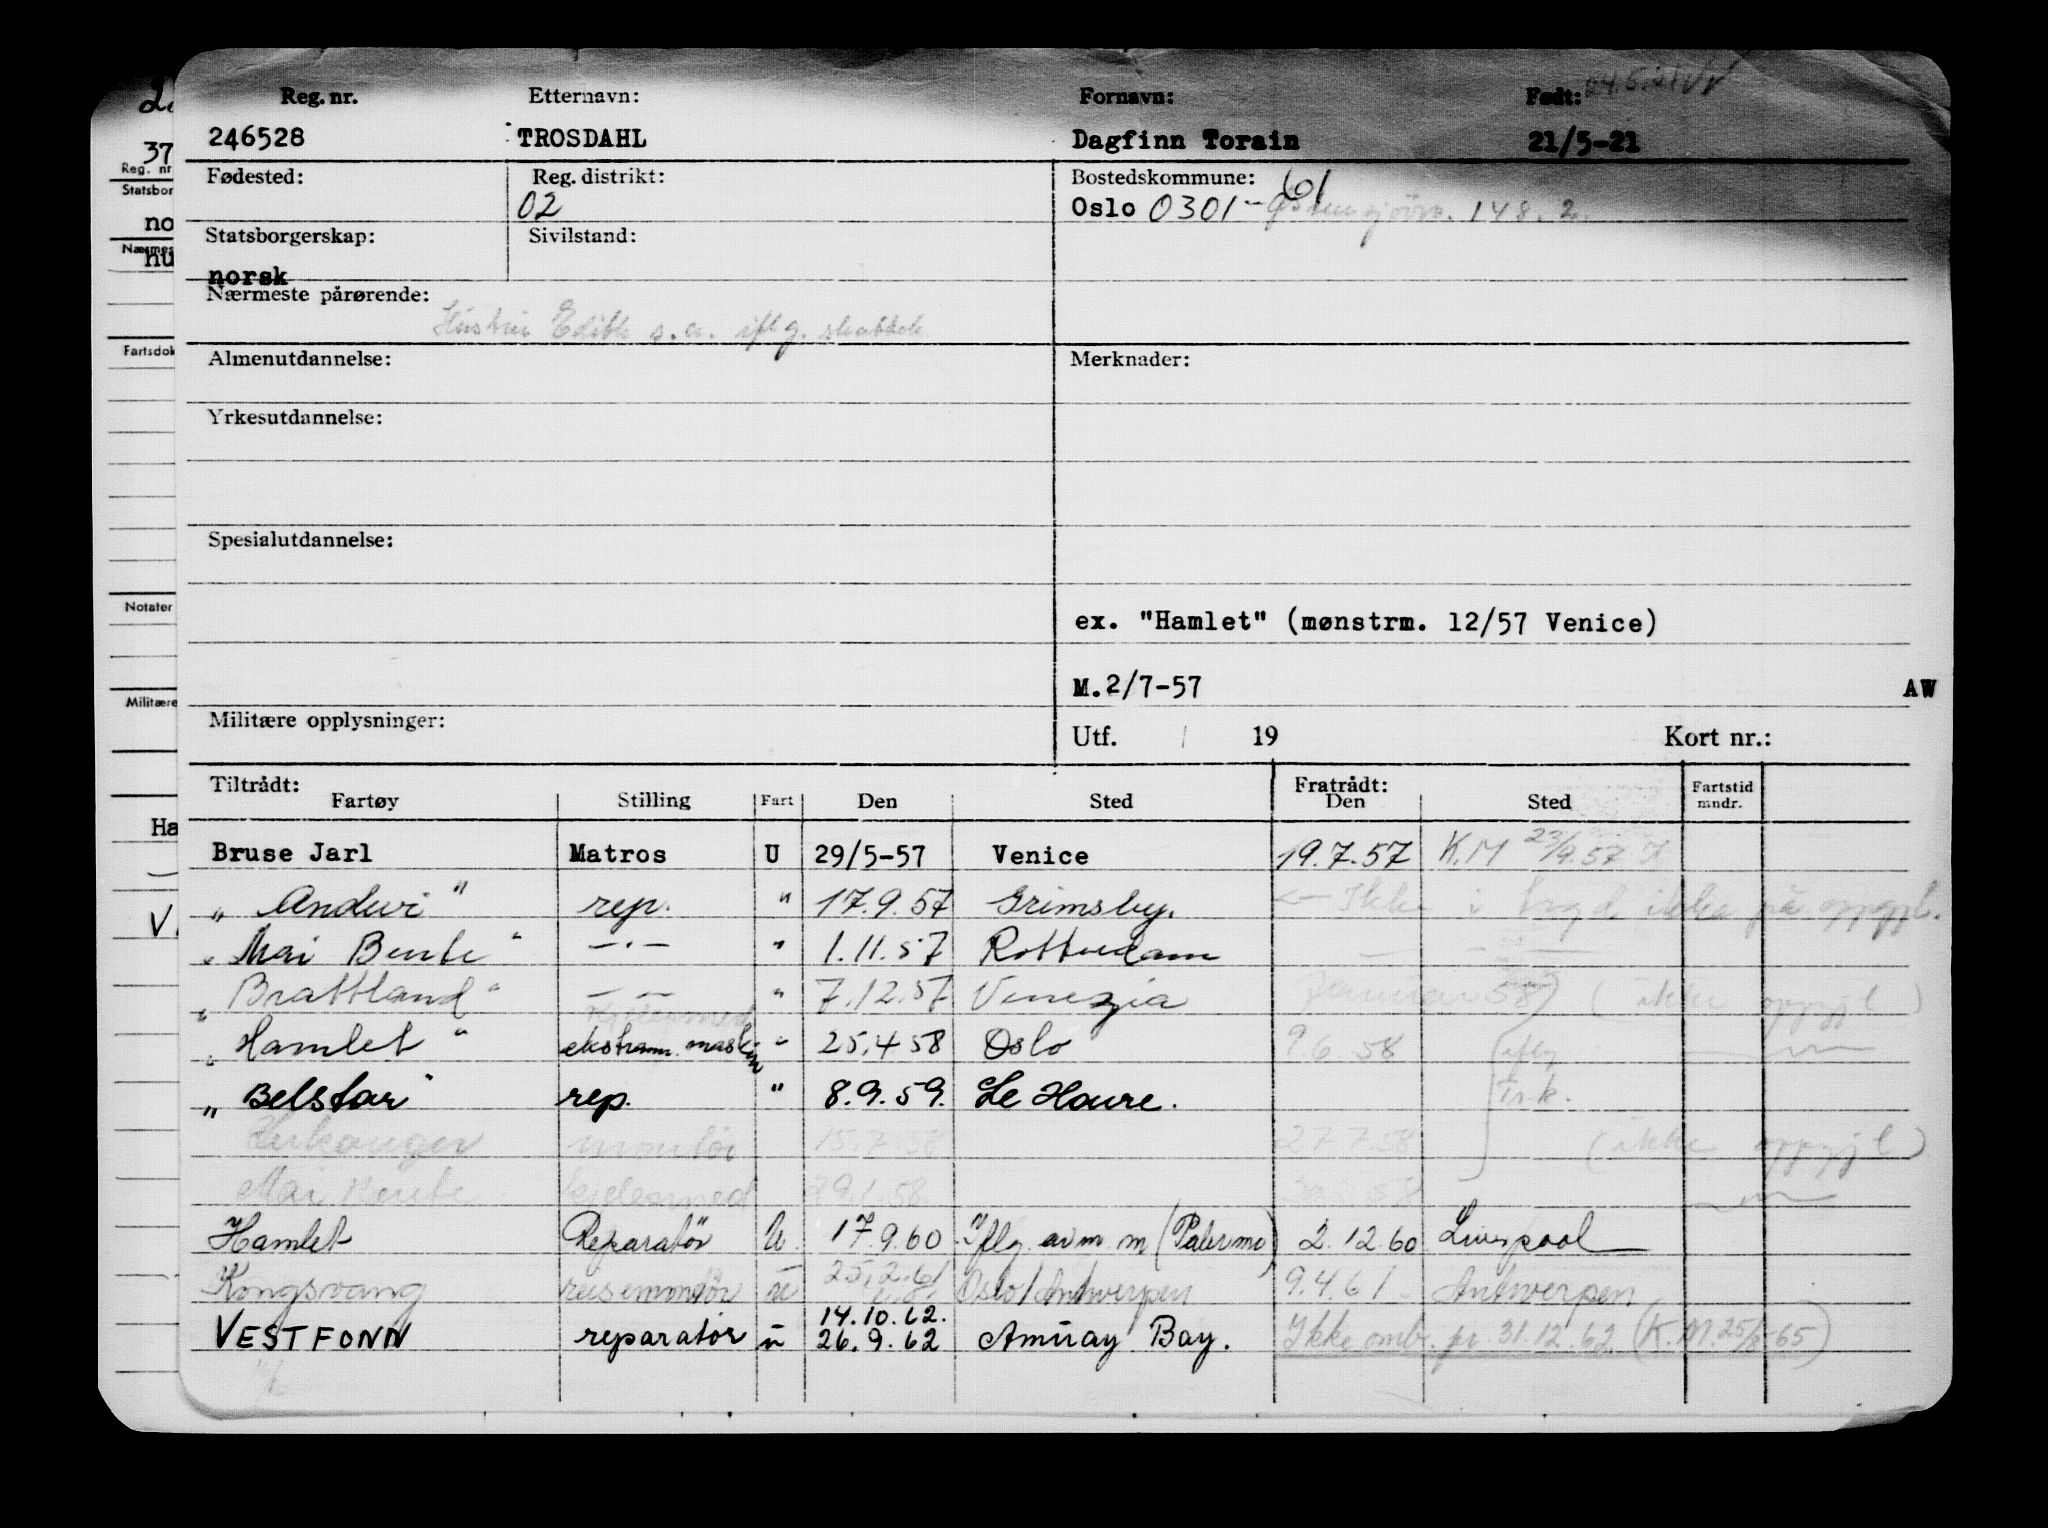 Reg. nr. Etternavn: Fornavn: Født:
246528 TROSDAHL Dagfinn Torain 21/5-21
Fødested: Reg. distrikt: Bostedskommune: 61
02 Oslo 0301 148.
Statsborgerskap: Sivilstand:
norsk
Nærmeste pårørende:
Hustru Edith s.a. iflg.
Almenutdannelse: Merknader:
Yrkesutdannelse:
Spesialutdannelse:
ex. "Hamlet" (mønstrm. 12/57 Venice)
M.2/7-57 AW
Militære opplysninger: Utf. / 19 Kort nr.:
Tiltrådt: Fratrådt:
Fartøy Stilling Fart Den Sted Den Sted Fartstid mndr.
Bruse Jarl Matros U 29/5-57 Venice 19.7.57 K.M 23/9.57
" Andwi " rep. " 17.9.57 Grimsby. Ikke i ikke på oppgj.
" Mai Bente " — . — " 1.11.57 Rotterdam
" Brattland " — — " 7.12.57 Venezia Januar 58 (ikke oppgjl)
" Hamlet " ekstram. maskin " 25.4 58 Oslo 9.6.58 iflg
" Belstar " rep. " 8.9.59. Le Havre. Tr.k.
montør 15.7.58 27.7.58 (ikke oppgjl)
Mai Bente kjelesmed 58
Hamlet Reparatör U 17.9.60 Iflg. avm. m (Palermo) 2.12.60 Liverpool
Kongsvang reisemontör u 25.2.61 Oslo/Antwerpen 9.4.61. Antwerpen
14.10.62.
VESTFONN reparatør u 26.9.62 Amuay Bay. Ikke omb. pr. 31.12.62 (K.M. 25/8 65)
37
Reg. nr
Statsbor
no
Nærmes
nu
Fartsdok
Notater
Militære
Ha
V